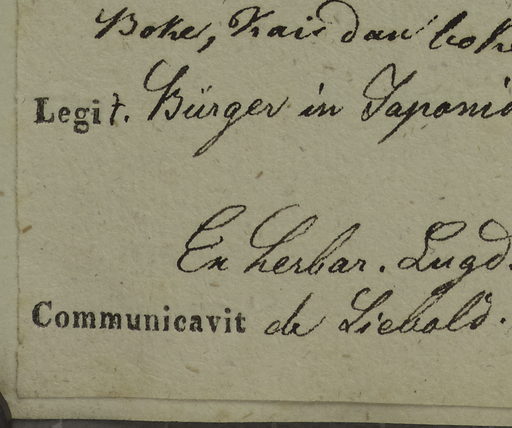 Boke, Kais dau boke
Legit. Bürger in Japonia
Ex herbar. Lugd.
Communicavit de Siebold.